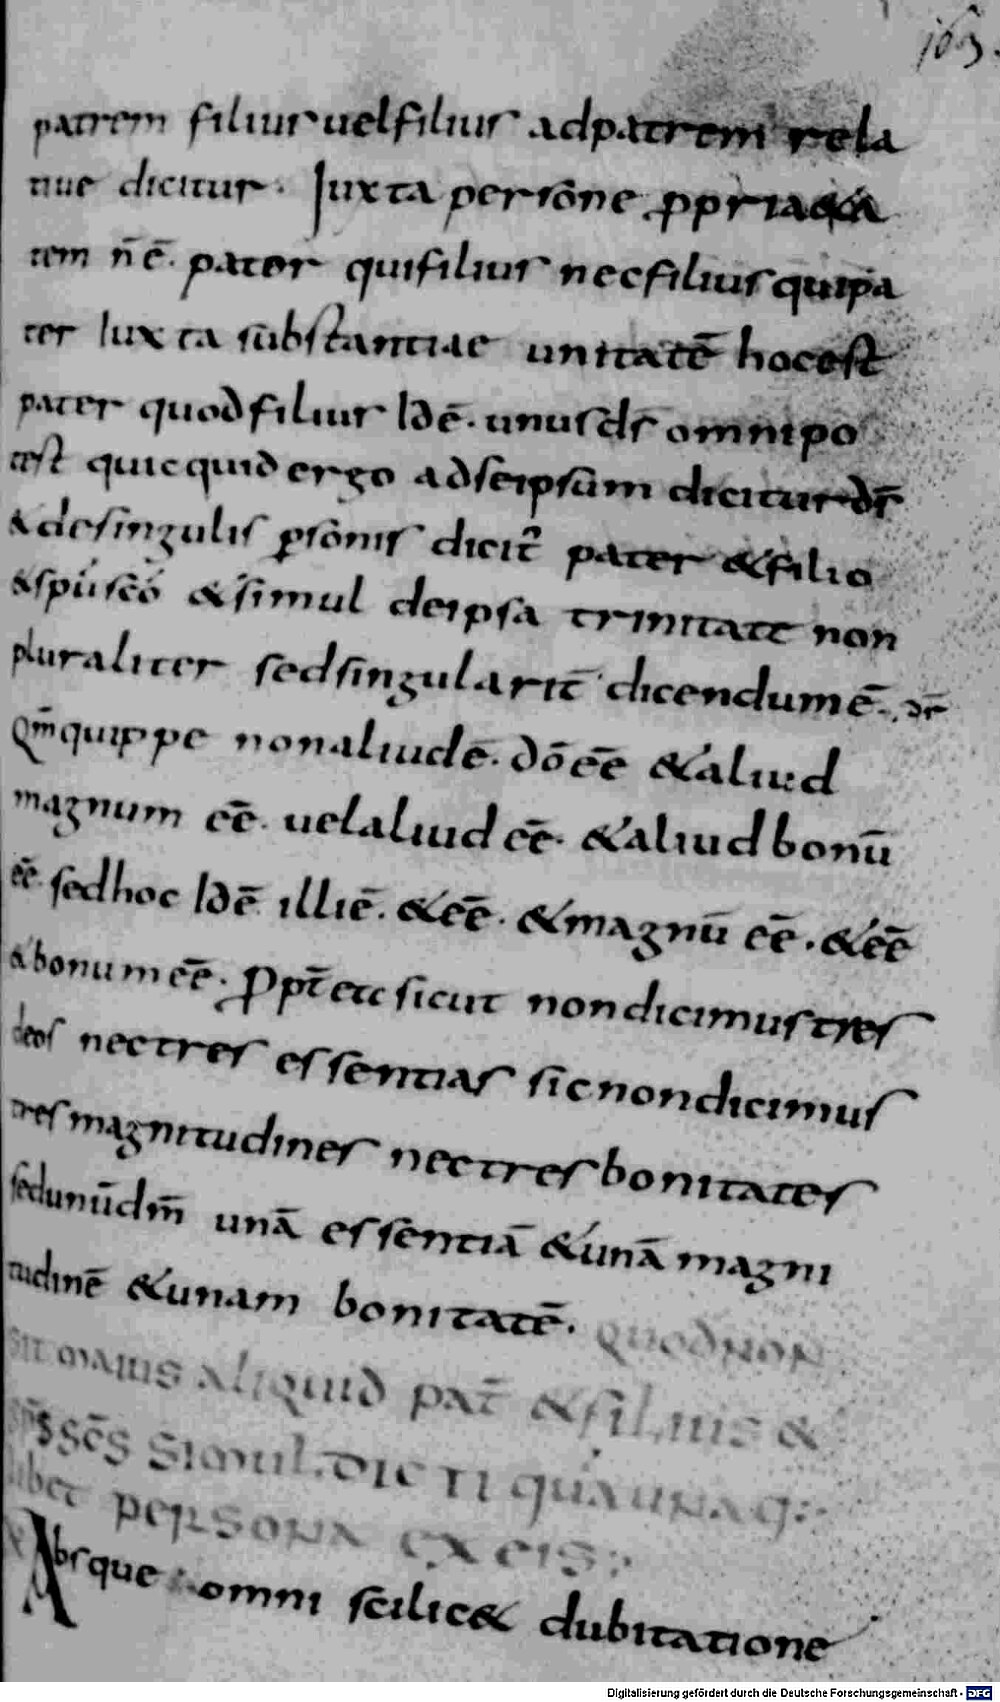 163.
patrem filius uel filius ad patrem rela
tiue dicitur. Iuxta persone ppriaeta
tem n̄ ē. pater qui filius nec filius qui pa
ter Iuxta substantiae unitatē hoc est
pater quod filius Idē. unus ds̄ omnipo
test quicquid ergo ad se ipsum dicitur ds̄
& de singulis psonis dicit᷑ pater & filio
& spū scō & simul de ipsa trinitate non
pluraliter sed singularit̄ dicendum ē. ds̄
Qm̄ quippe non aliud ē. dō eē & aliud
magnum eē. uel aliud eē. & aliud bonū
eē. sed hoc Idē illi ē. & eē. & magnū eē. & eē
& bonum eē. Propt̄ ete sicut non dicimus tres
deos nec tres essentias sic non dicimus
tres magnitudines nec tres bonitates
sed unū dm̄ unā essentiā & unā magni
tudinē & unam bonitatē. quod non
sit maius aliquid pat̄ & filius &
sp̄s sc̄s simul dicti quā una q:
libet persona ex eis:
Absque omni scilic& dubitatione
Digitalisierung gefördert durch die Deutsche Forschungsgemeinschaft - DFG